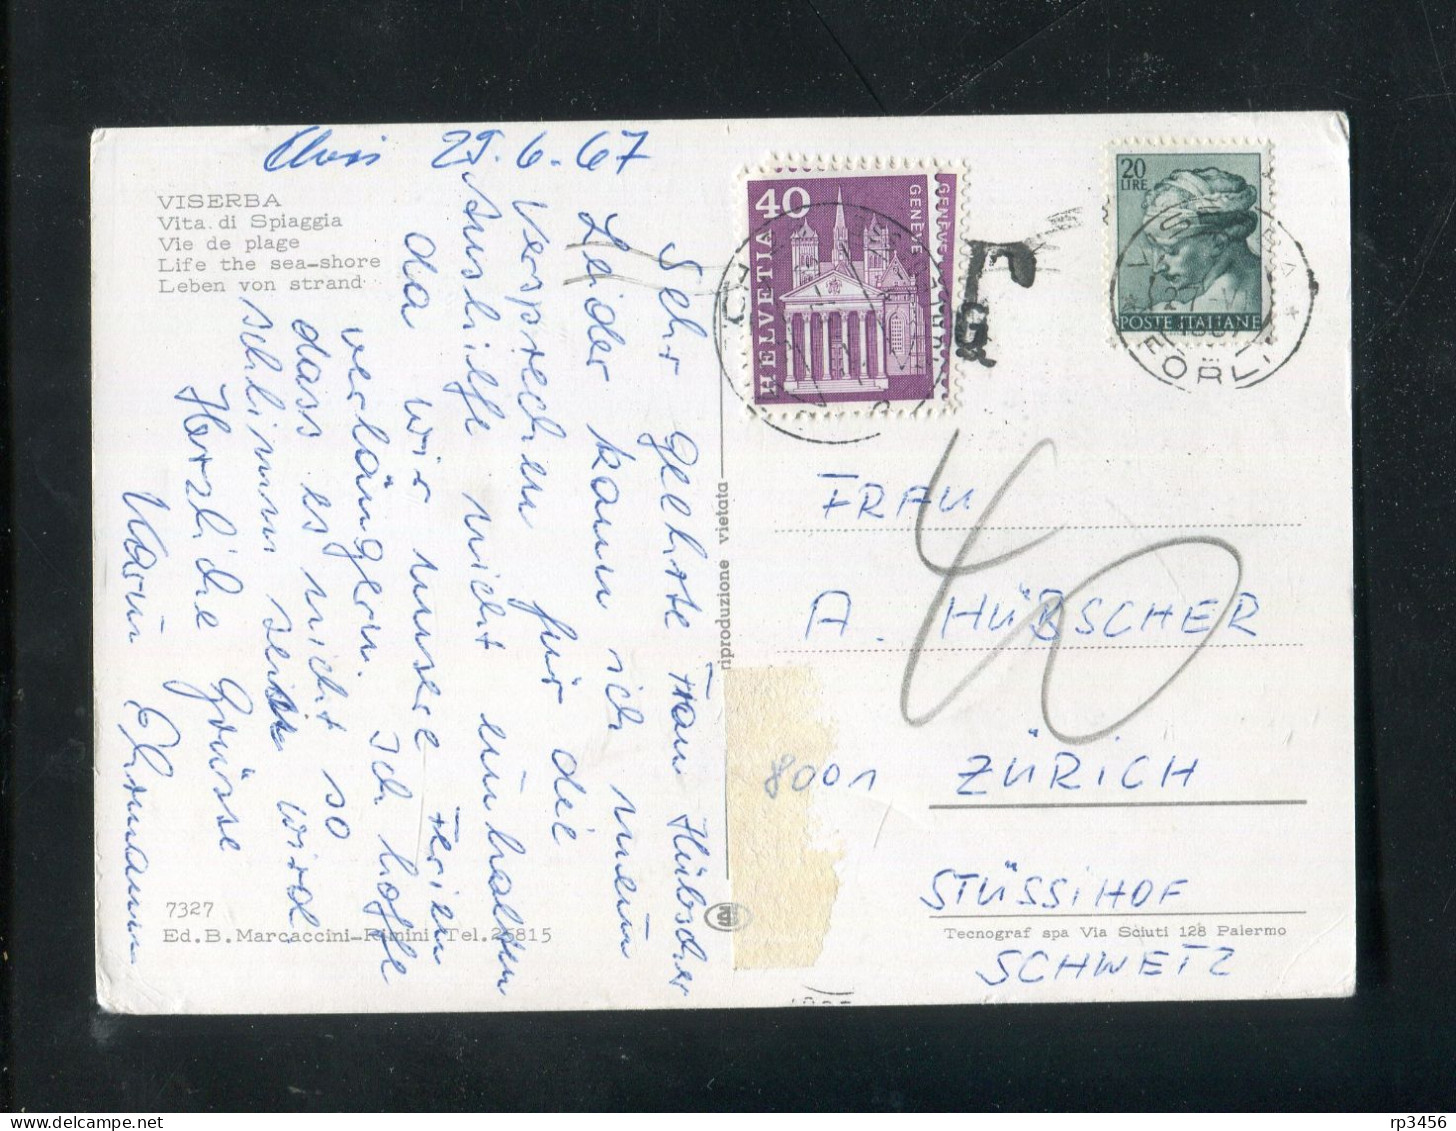 29.6.67
VISERBA
Vita di Spiaggia
Vie de plage
Life the sea-shore
Leben von strand
Sehr geehrte Frau Hübscher
Leider kann ich mein
Versprechen für die
Aushilfe nicht einhalten
da wir unsere Ferien
verlängern. Ich hoffe
dass es nicht so
schlimm sein wird.
Herzliche Grüsse
Karin
7327
Ed.B.Marcaccini-Rimini Tel.25815
riproduzione vietata
40
HELVETIA
GENEVE
GENEVE
T
G
20
LIRE
POSTE ITALIANE
FORLI
40
FRAU
A. HÜBSCHER
8001 ZÜRICH
STÜSSIHOF
Tecnograf spa Via Sciuti 128 Palermo
SCHWEIZ
rp3456